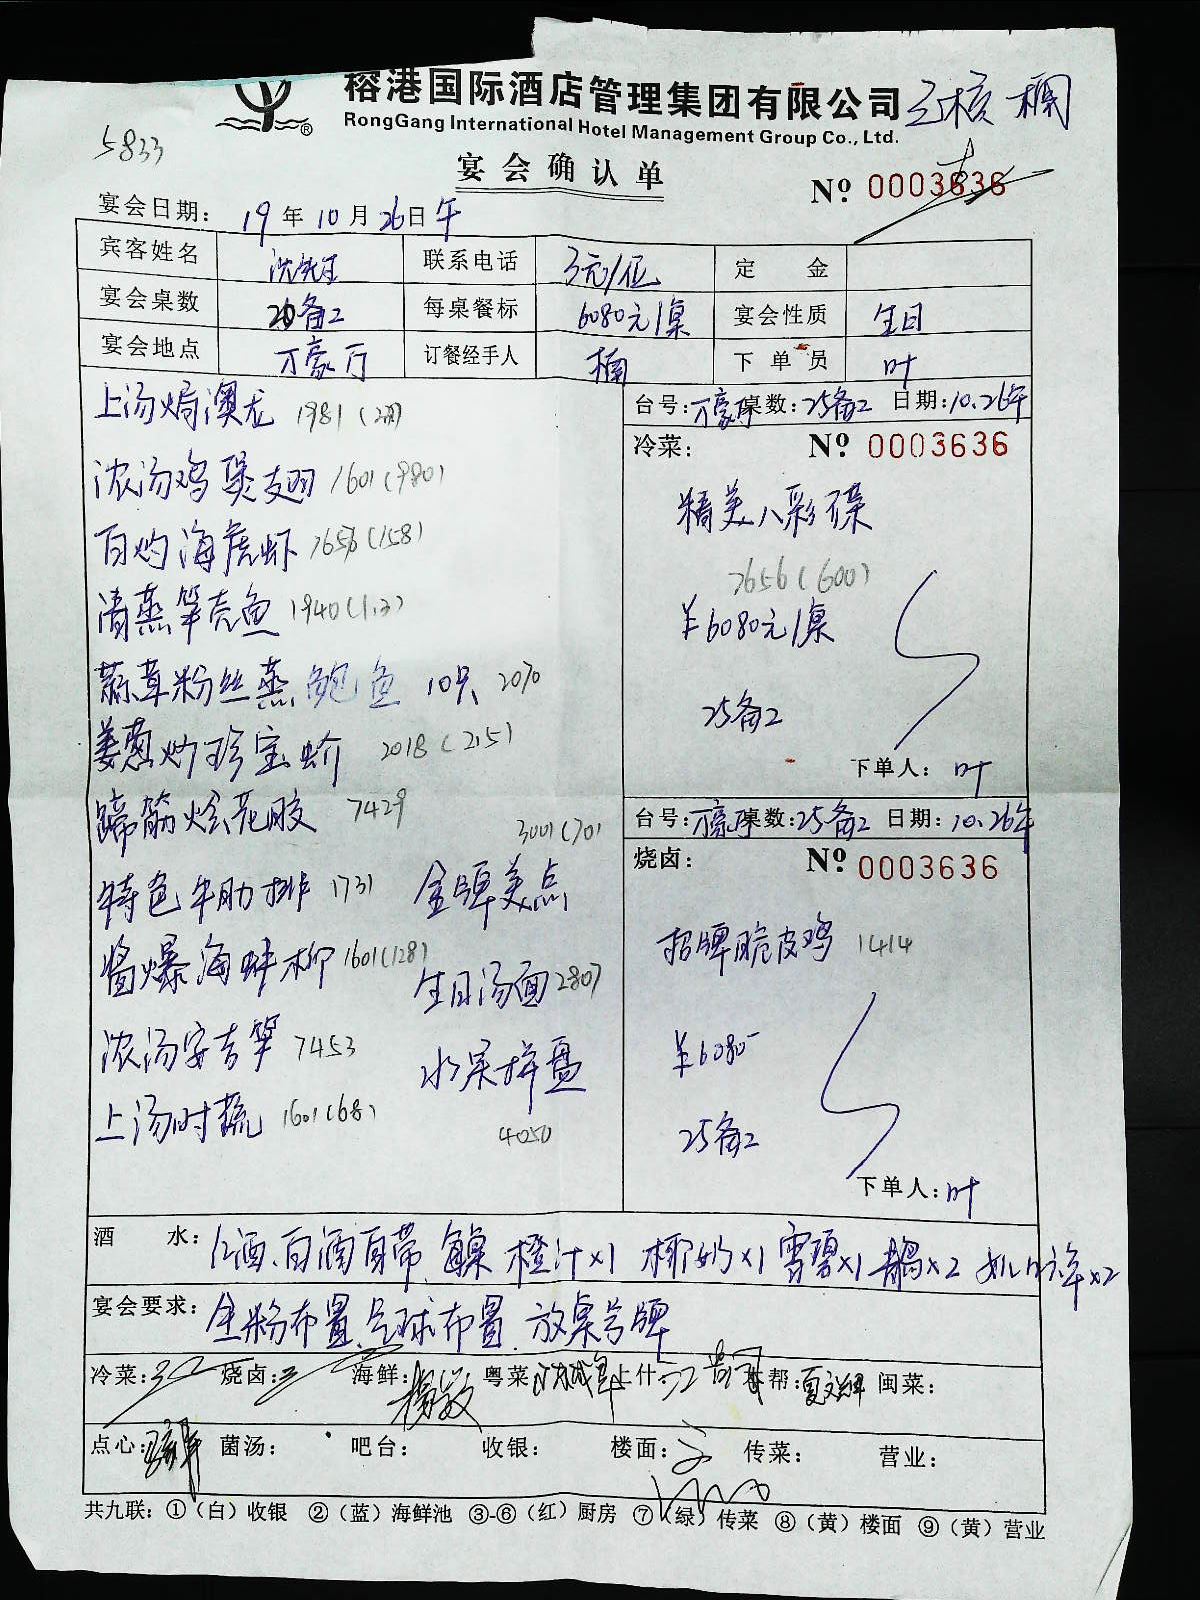 榕港国际酒店管理集团有限公司
RongGang International Hotel Management Group Co., Ltd.
5833
宴会确认单
№ 0003636
宴会日期: 19年10月26日午
宾客姓名 沈先生 联系电话 3元/位 定金
宴会桌数 20备2 每桌餐标 6080元/桌 宴会性质 生日
宴会地点 万豪厅 订餐经手人 楠 下单员 叶
上汤焗澳龙 1981
浓汤鸡煲翅 1601(980)
白灼海虎虾 7656(158)
清蒸笋壳鱼 1940(1.3)
蒜茸粉丝蒸鲍鱼 10只 2070
姜葱炒珍宝蚧 2018(215)
蹄筋烩花胶 7429
特色牛肋排 1731
酱爆海蚌柳 1601(128)
浓汤安吉笋 7453
上汤时蔬 1601(68)
3001(70)
金牌美点
生日汤面 2807
水果拼盘
4050
台号: 万豪厅 桌数: 25备2 日期: 10.26午
冷菜: № 0003636
精美八彩碟
7656(600)
¥6080元/桌
25备2
下单人: 叶
台号: 万豪厅 桌数: 25备2 日期: 10.26午
烧卤: № 0003636
招牌脆皮鸡 1414
¥6080-
25备2
下单人: 叶
酒水: 红酒、白酒自带、每桌 橙汁x1 椰奶x1 雪碧x1
宴会要求: 全粉布置、气球布置、放桌号牌
冷菜: 烧卤: 海鲜: 粤菜 上什: 本帮: 闽菜:
点心: 菌汤: 吧台: 收银: 楼面: 传菜: 营业:
共九联: ①(白)收银 ②(蓝)海鲜池 ③-⑥(红)厨房 ⑦(绿)传菜 ⑧(黄)楼面 ⑨(黄)营业